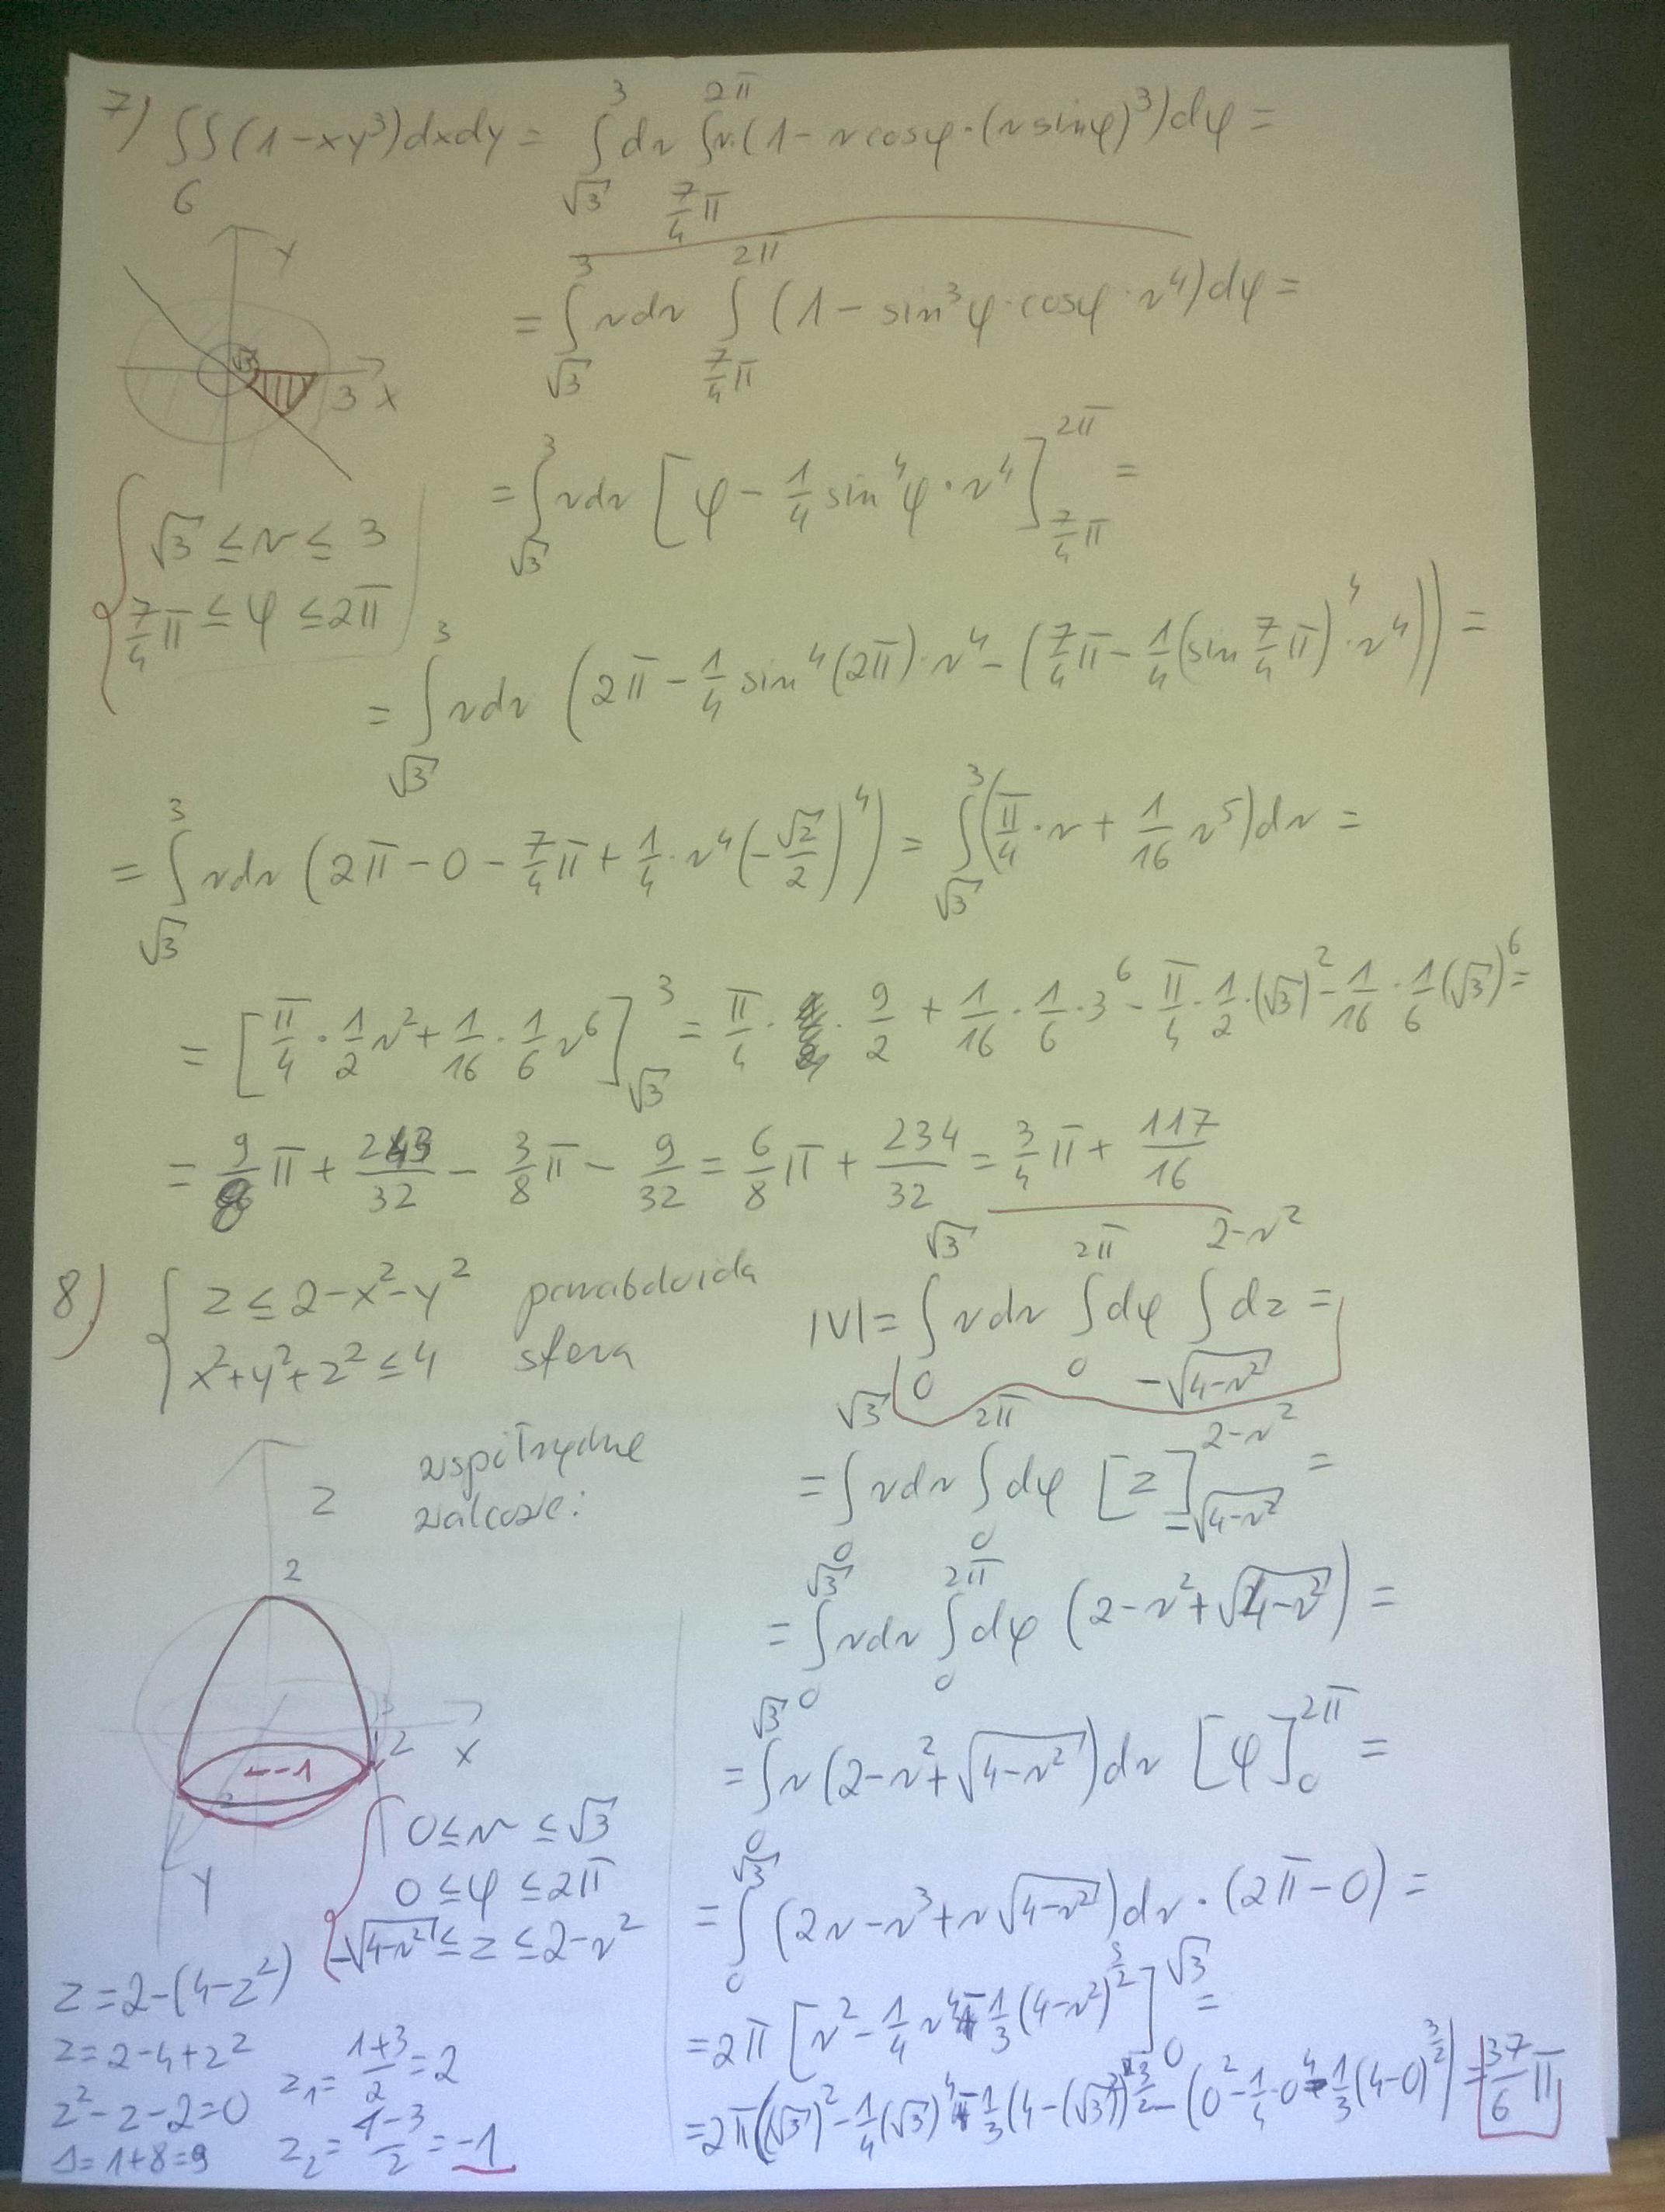 7) ∫∫(1-xy³)dxdy = ∫dr ∫r·(1-r cosφ·(r sinφ)³)dφ =
G √3 3 7/4 π 2π
y
√3 3 x
= ∫_{√3}^{3} rdr ∫_{7/4 π}^{2π} (1 - sin³φ·cosφ·r⁴)dφ =
= ∫_{√3}^{3} rdr [φ - 1/4 sin⁴φ·r⁴]_{7/4 π}^{2π} =
√3 ≤ r ≤ 3
7/4 π ≤ φ ≤ 2π
= ∫_{√3}^{3} rdr (2π - 1/4 sin⁴(2π)·r⁴ - (7/4 π - 1/4 (sin 7/4 π)⁴·r⁴)) =
= ∫_{√3}^{3} rdr (2π - 0 - 7/4 π + 1/4·r⁴(-√2/2)⁴) = ∫_{√3}^{3} (π/4·r + 1/16 r⁵)dr =
= [π/4·1/2 r² + 1/16·1/6 r⁶]_{√3}^{3} = π/4· · 9/2 + 1/16·1/6·3⁶ - π/4·1/2·(√3)² - 1/16·1/6(√3)⁶ =
= 9/8 π + 243/32 - 3/8 π - 9/32 = 6/8 π + 234/32 = 3/4 π + 117/16
8) { z ≤ 2-x²-y² paraboloida
x²+y²+z² ≤ 4 sfera
|V| = ∫_{0}^{√3} rdr ∫_{0}^{2π} dφ ∫_{-√(4-r²)}^{2-r²} dz =
współrzędne
walcowe:
= ∫_{0}^{√3} rdr ∫_{0}^{2π} dφ [z]_{-√(4-r²)}^{2-r²} =
z
2
= ∫_{0}^{√3} rdr ∫_{0}^{2π} dφ (2-r²+√(4-r²)) =
2 x
-1
y
= ∫_{0}^{√3} r(2-r²+√(4-r²))dr [φ]_{0}^{2π} =
0 ≤ r ≤ √3
0 ≤ φ ≤ 2π
-√(4-r²) ≤ z ≤ 2-r²
= ∫_{0}^{√3} (2r-r³+r√(4-r²))dr·(2π-0) =
z = 2-(4-z²)
z = 2-4+z²
z²-z-2=0
Δ=1+8=9
z₁ = (1+3)/2 = 2
z₂ = (1-3)/2 = -1
= 2π [r² - 1/4 r⁴ - 1/3 (4-r²)^{3/2}]_{0}^{√3} =
= 2π((√3)² - 1/4 (√3)⁴ - 1/3 (4-(√3)²)^{3/2} - (0² - 1/4·0⁴ - 1/3 (4-0)^{3/2}) = 37/6 π